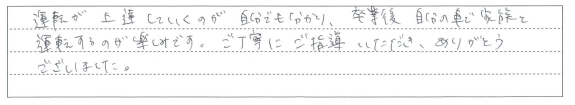 運転が上達していくのが自分でも分かり、卒業後自分の車で家族と
運転するのが楽しみです。ご丁寧にご指導いただき、ありがとう
ございました。